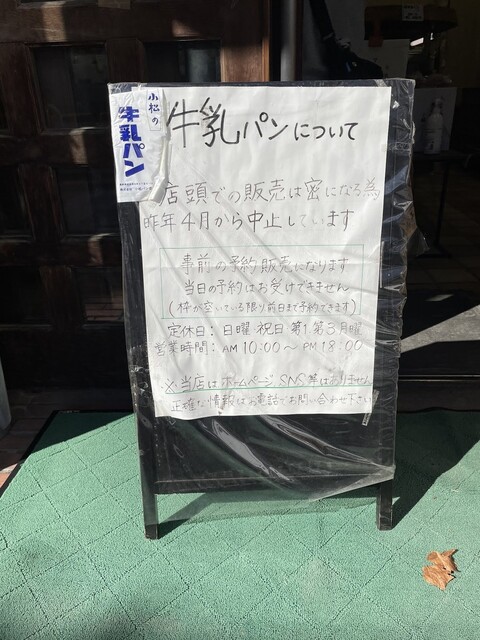 小松の
牛乳パン
牛乳パンについて
店頭での販売は密になる為
昨年4月から中止しています
事前の予約販売になります
当日の予約はお受けできません
(枠が空いている限り前日まで予約できます)
定休日:日曜 祝日 第1第3月曜
営業時間:AM 10:00〜PM 18:00
※当店はホームページ SNS等はありません
正確な情報はお電話でお問い合わせ下さい